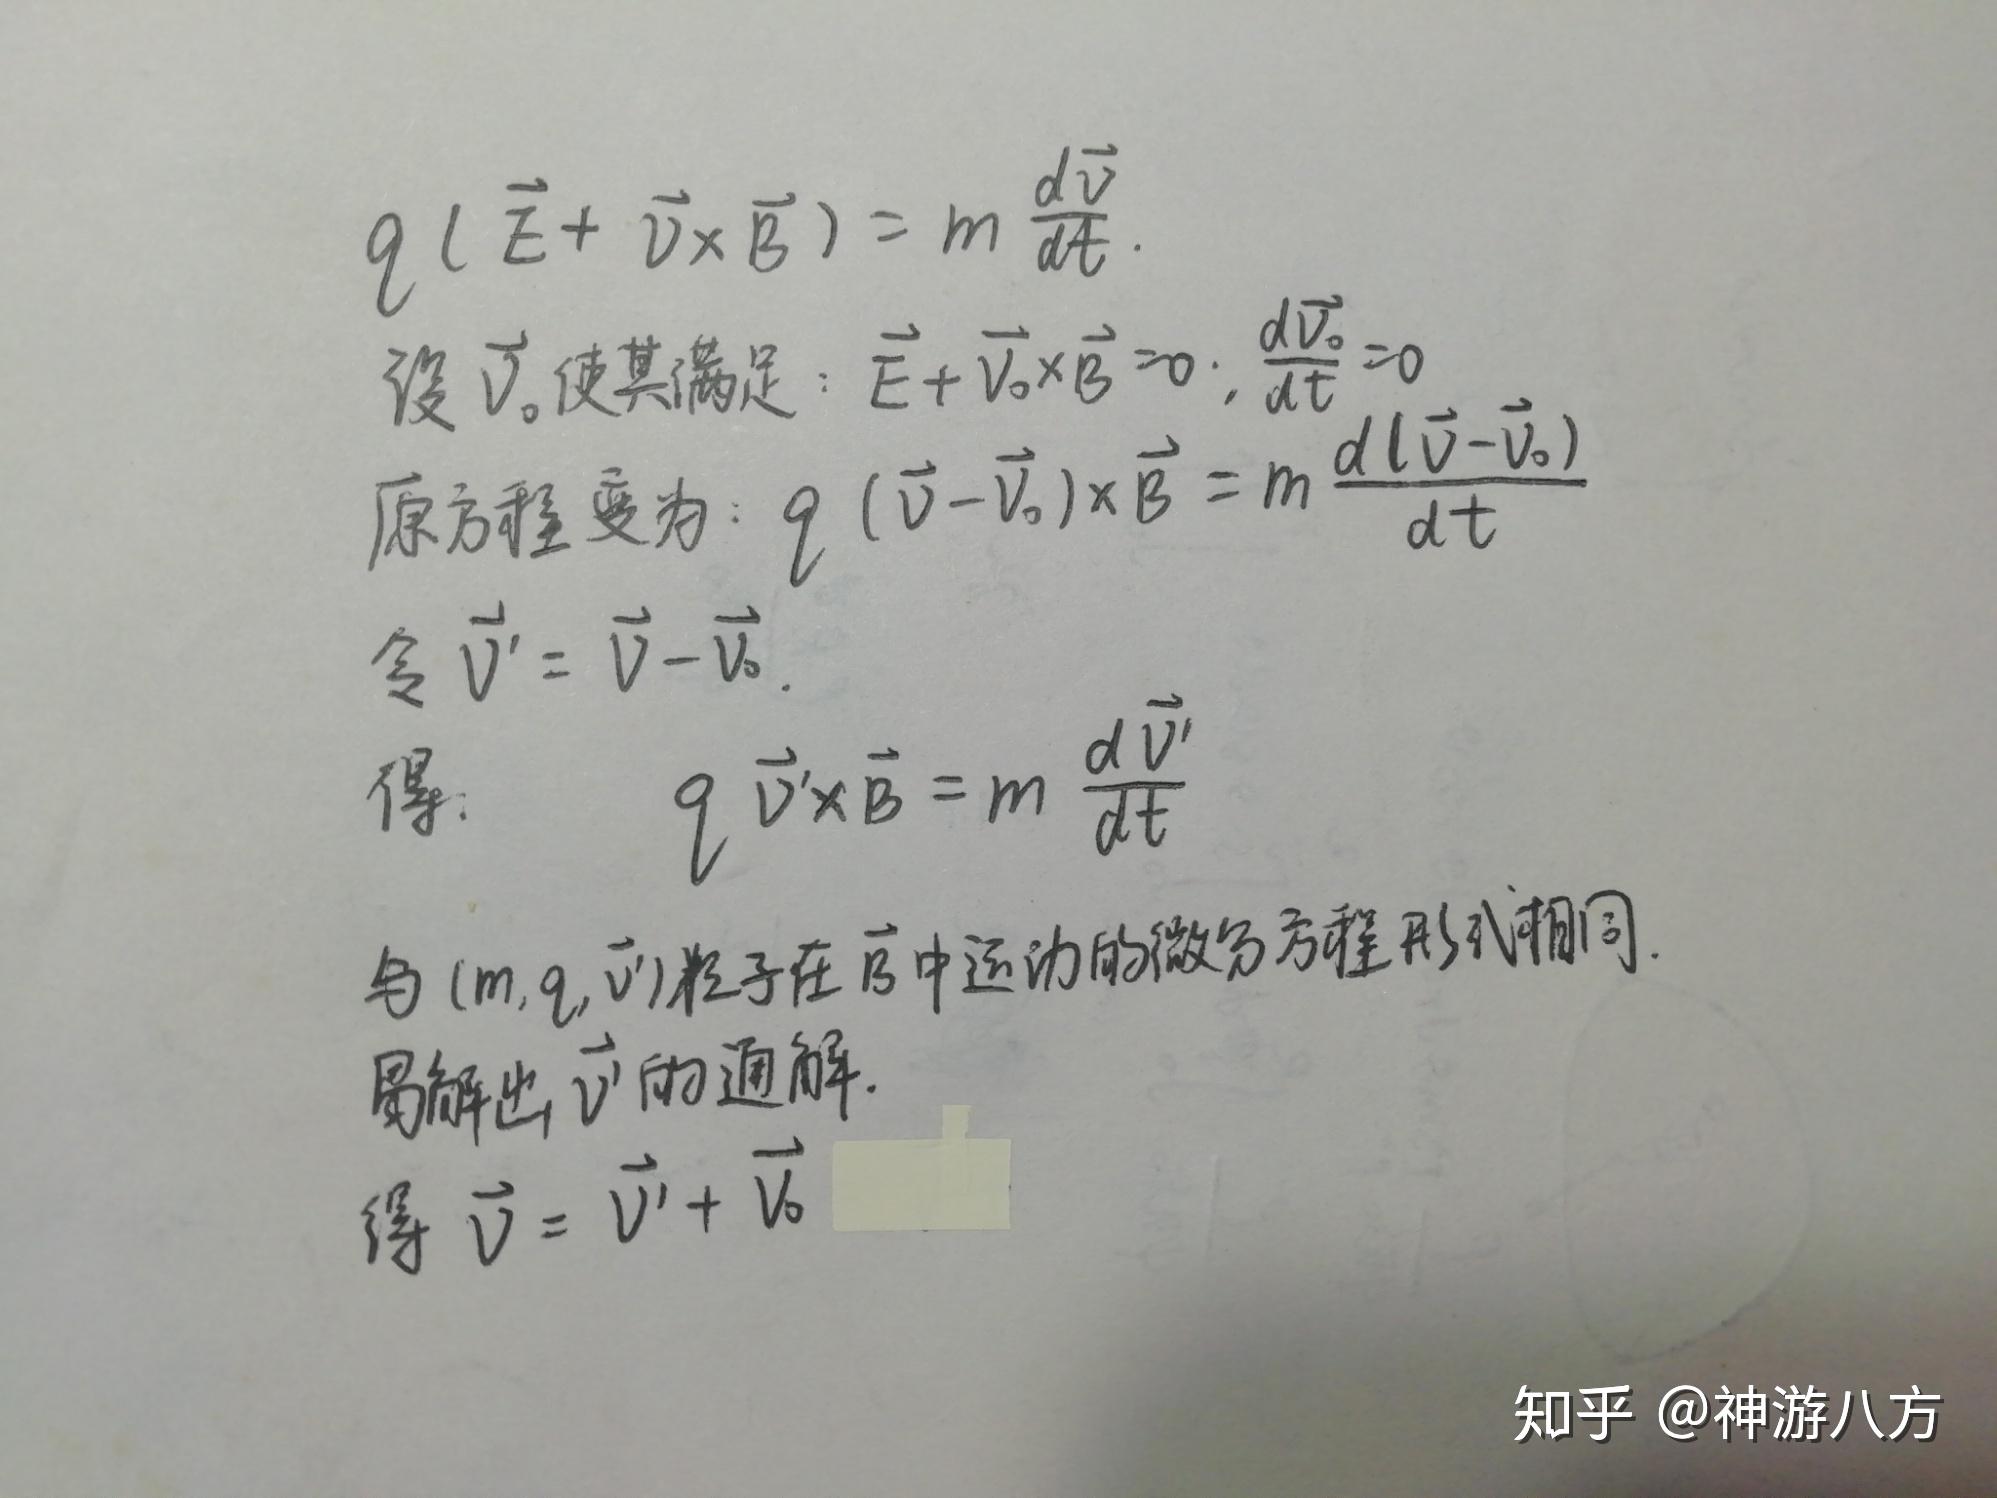 q(E⃗ + v⃗ × B⃗) = m dv⃗/dt.
设 v⃗₀ 使其满足: E⃗ + v⃗₀ × B⃗ = 0 ; dv⃗₀/dt = 0
原方程变为: q(v⃗ - v⃗₀) × B⃗ = m d(v⃗ - v⃗₀)/dt
令 v⃗' = v⃗ - v⃗₀.
得: q v⃗' × B⃗ = m dv⃗'/dt
与 (m, q, v⃗') 粒子在 B⃗ 中运动的微分方程形式相同.
易解出 v⃗' 的通解.
得 v⃗ = v⃗' + v⃗₀
知乎 @神游八方